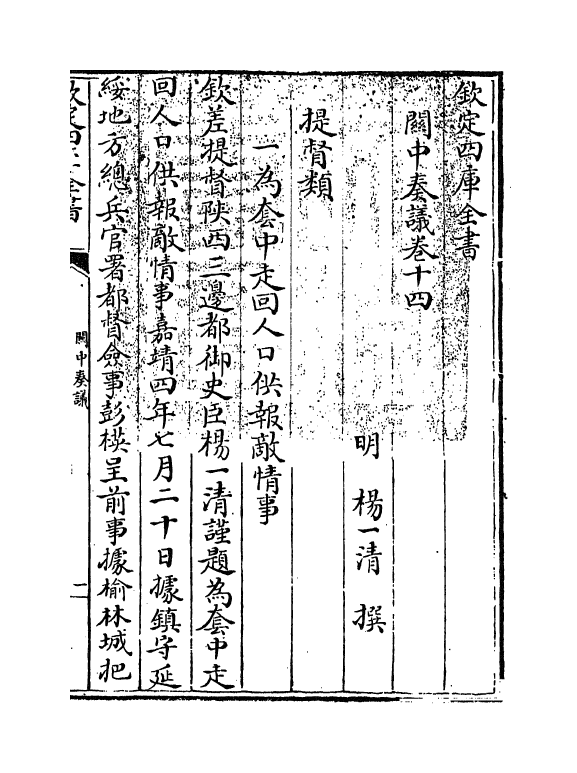 欽定四庫全書
關中奏議卷十四
明 楊一清 撰
提督類
一為套中走回人口供報敵情事
欽差提督陝西三邊都御史臣楊一清謹題為套中走
回人口供報敵情事嘉靖四年七月二十日據鎮守延
綏地方總兵官署都督僉事彭楧呈前事據榆林城把
欽定四庫全書
關中奏議
二